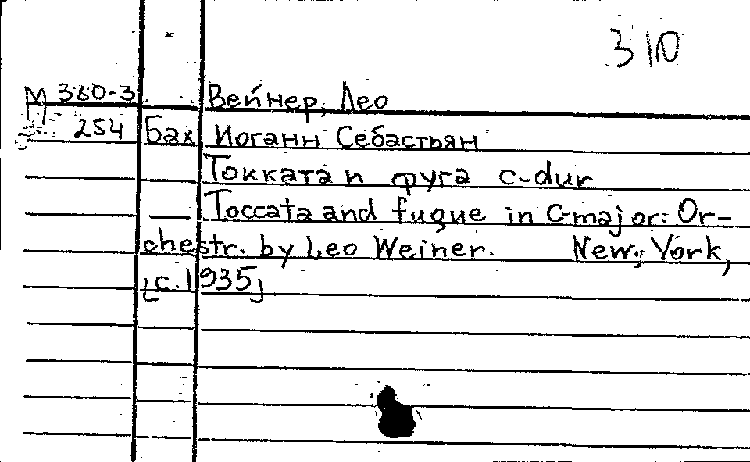 310
М 360-3 Вейнер, Лео
254 Бах Иоганн Себастьян
Токката и фуга c-dur
— Toccata and fugue in C-major: Or-
chestr. by Leo Weiner. New, York,
[c. 1935]